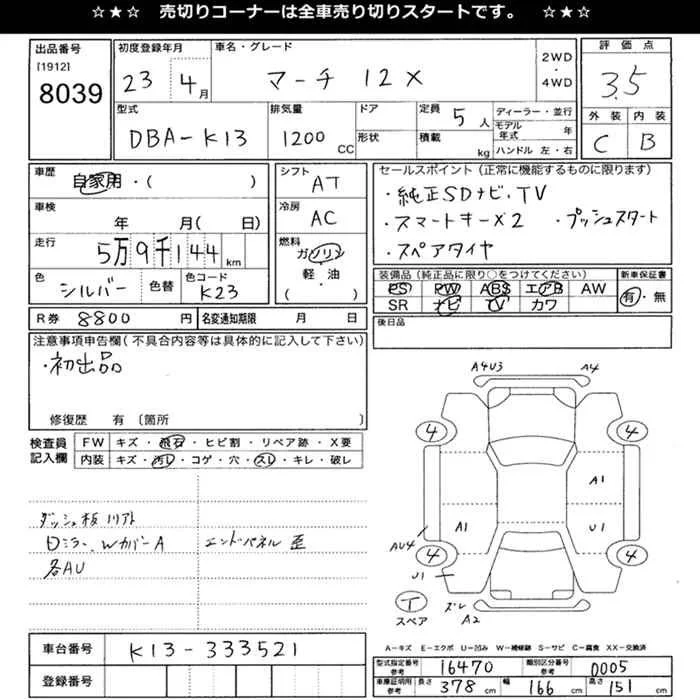 ☆★☆ 売切りコーナーは全車売り切りスタートです。 ☆★☆
出品番号
[1912]
8039
初度登録年月
23 4月
車名・グレード
マーチ 12X
2WD
・
4WD
評価点
3.5
外装 内装
C B
型式
DBA-K13
排気量
1200 CC
ドア
形状
定員 5人
積載 kg
ディーラー・並行
モデル年式 年
ハンドル 左・右
車歴
自家用・( )
車検
年 月( 日)
走行
5万9千144 km
色
シルバー
色替
色コード
K23
シフト
AT
冷房
AC
燃料
ガソリン
・
軽・油
( )
セールスポイント(正常に機能するものに限ります)
・純正SDナビ、TV
・スマートキー×2 ・プッシュスタート
・スペアタイヤ
装備品(純正品に限り○をつけてください)
PS PW ABS エアB AW
SR ナビ TV カワ
新車保証書
有・無
R券 8800 円
名変通知期限 月 日
後日品
注意事項申告欄(不具合内容等は具体的に記入して下さい)
・初出品
修復歴 有 〔箇所 〕
検査員記入欄
FW キズ・飛石・ヒビ割・リペア跡・X要
内装 キズ・汚レ・コゲ・穴・スレ・キレ・破レ
ダッシュ板
Dミラー、WカバーA
各AU
エンドパネル歪
A4U3 A4
4 4
A1
A1 U1
AU4
4 4
U1
T
スペア
ズレ
A2
車台番号 K13-333521
登録番号
A−キズ E−エクボ U−凹み W−補修跡 S−サビ C−腐食 XX−交換済
型式指定番号 参考 16470 類別区分番号 参考 0005
車庫証明用 参考 長さ 378 cm 幅 166 cm 高さ 151 cm